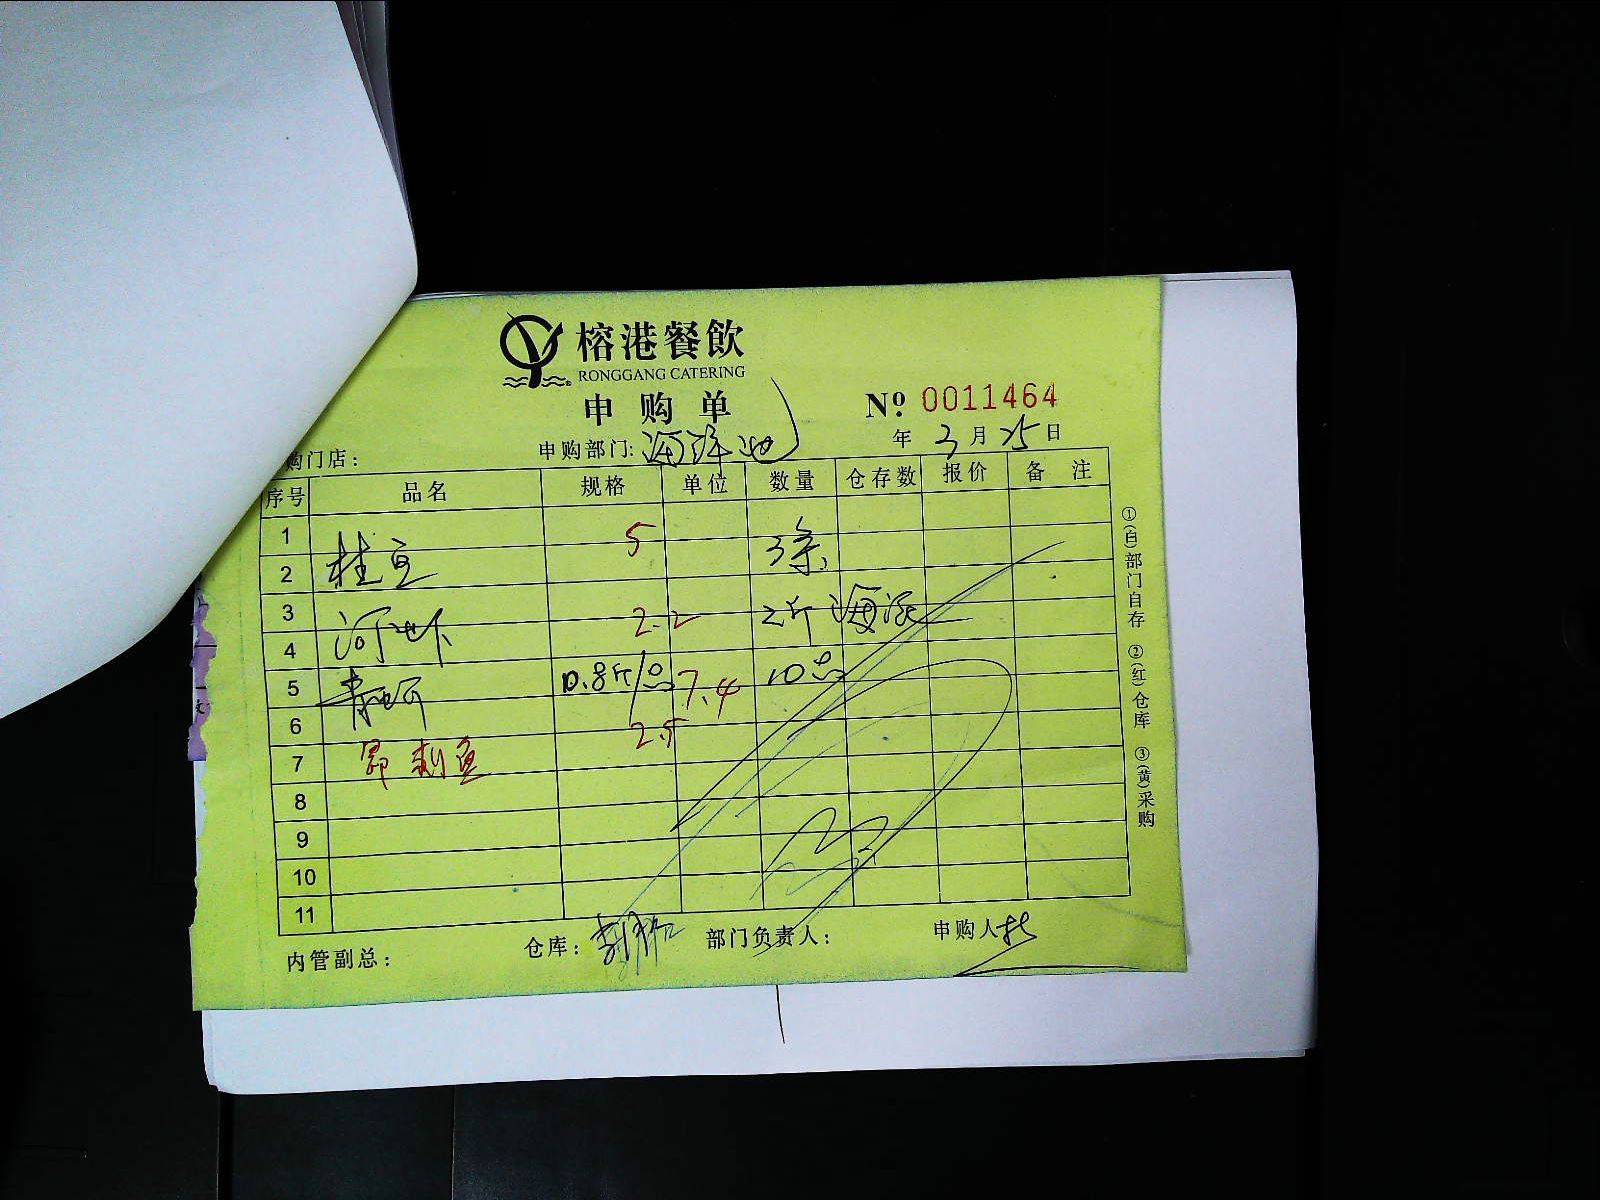 榕港餐飲
RONGGANG CATERING
申购单
№ 0011464
购门店：
申购部门: 海洋池
年 3月25日
序号 品名 规格 单位 数量 仓存数 报价 备注
1
2 桂鱼 5 3条
3
4 河虾 2.2 2斤
5 0.8斤/只 7.4 10只
6 2.5
7 昂刺鱼
8
9
10
11
内管副总：
仓库：
部门负责人：
申购人
①(白)部门自存 ②(红)仓库 ③(黄)采购